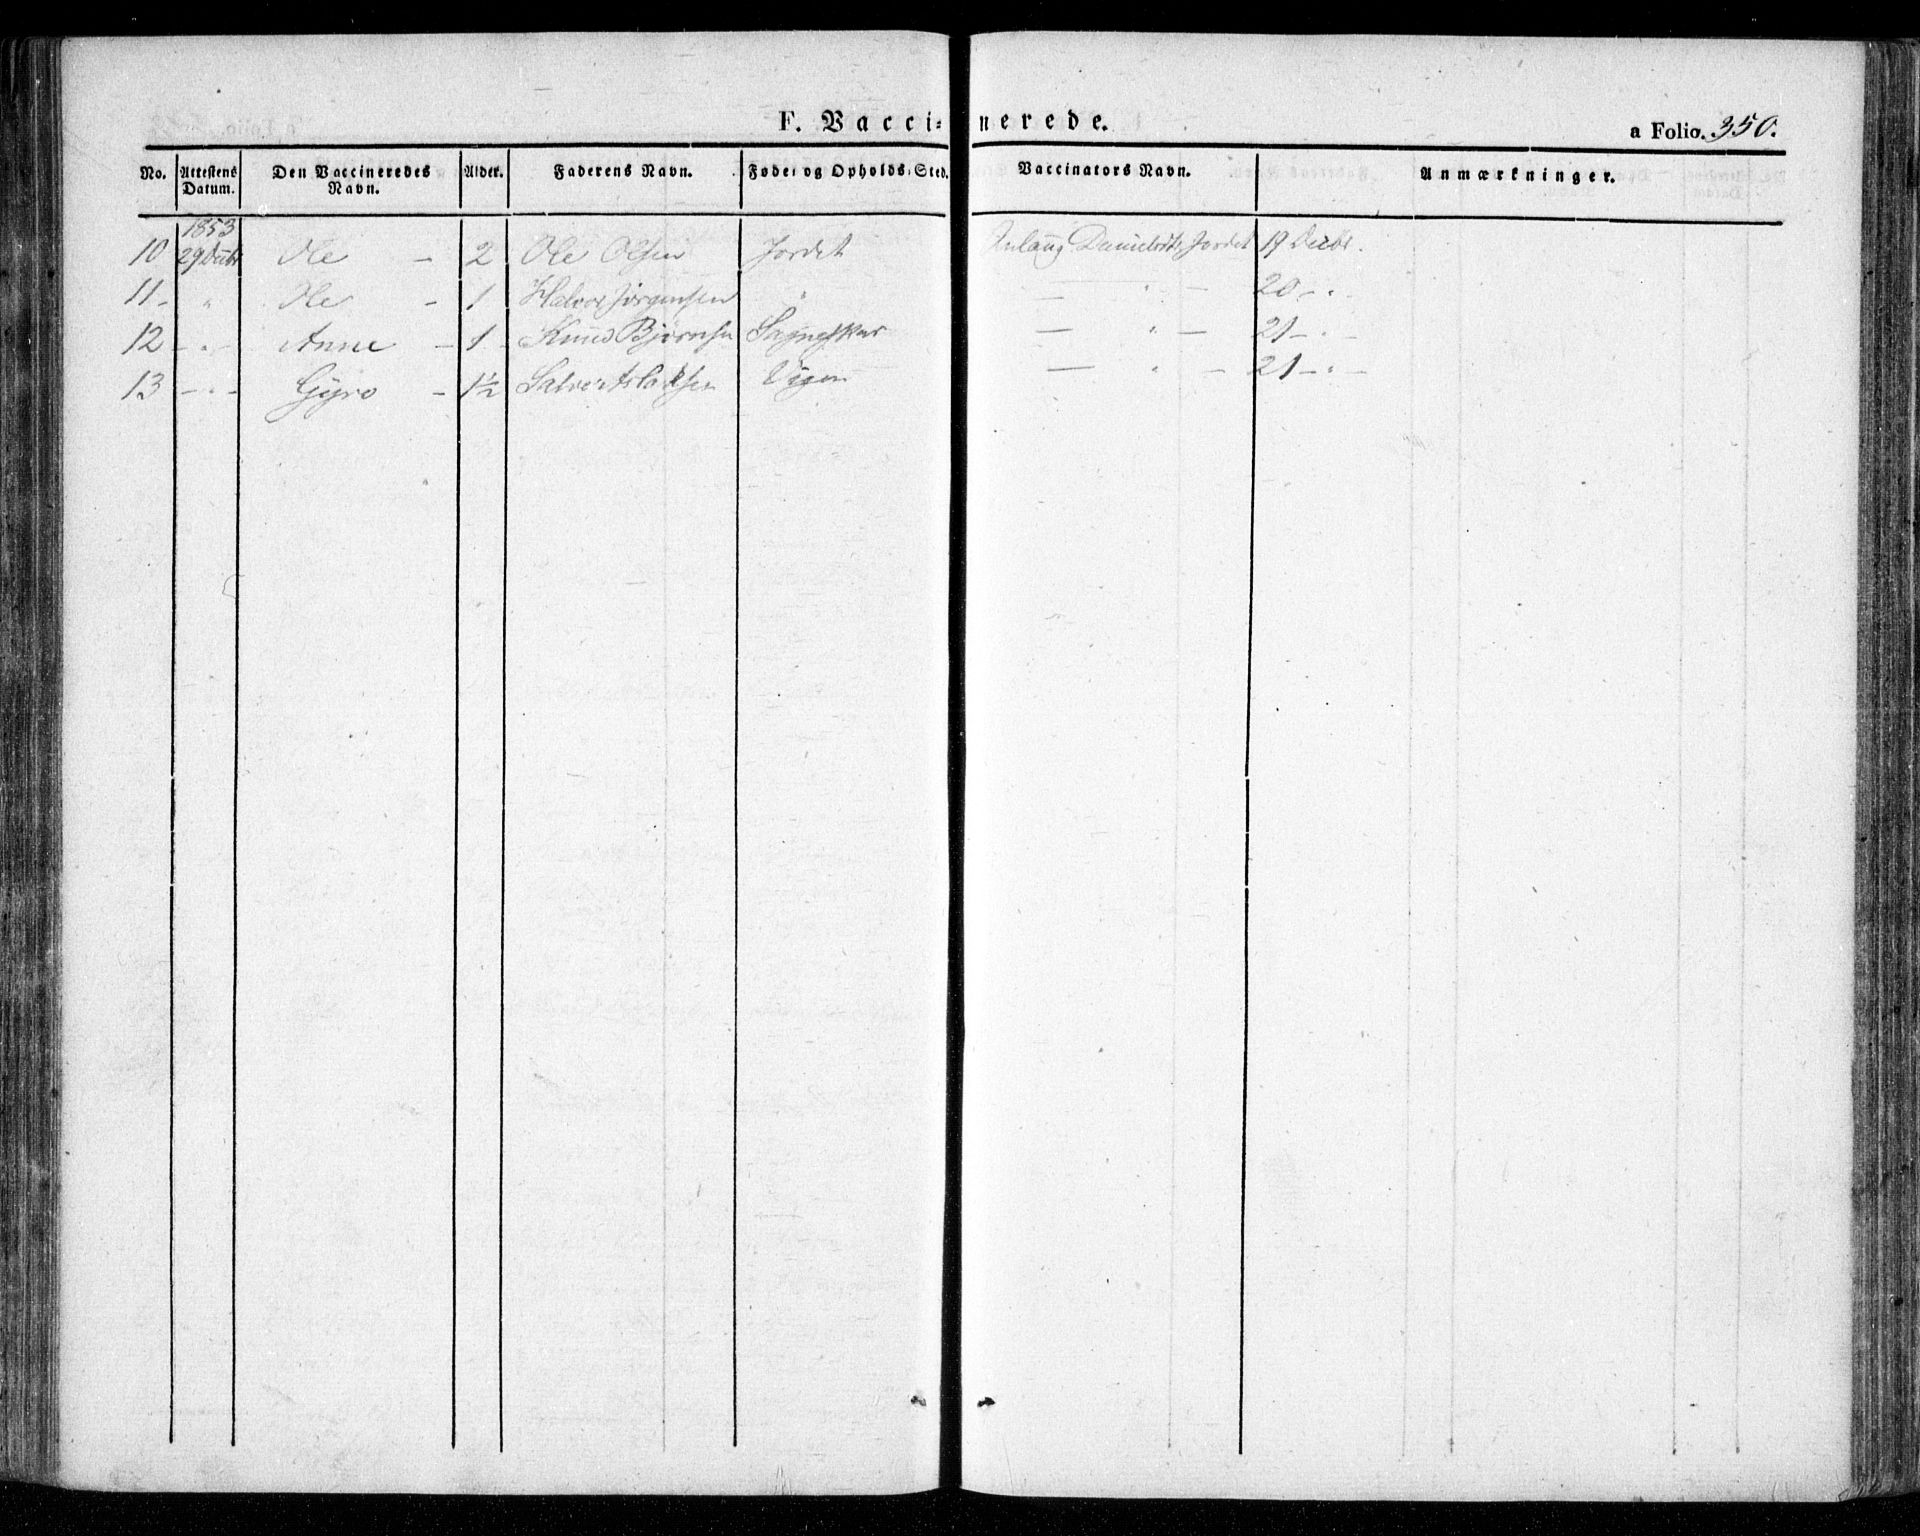 F. Vacci- nerede.
a Folio. 350.
No. Attestens Datum. Den Vaccineredes Navn. Alder. Faderens Navn. Føde- og Opholds-Sted. Vaccinators Navn. Anmærkninger.
1853
10 29 Decbr Ole - 2 Ole Olsen Jordet Jordet 19 Decbr.
11 - " Ole - 1 Halvor Jørgensen " — " — 20 - " -
12 - " - Anne - 1 - Knud Bjørnsen — " — 21 - " -
13 - " - Gyro - 1½ Salve Aslaksen — " — 21 - " -